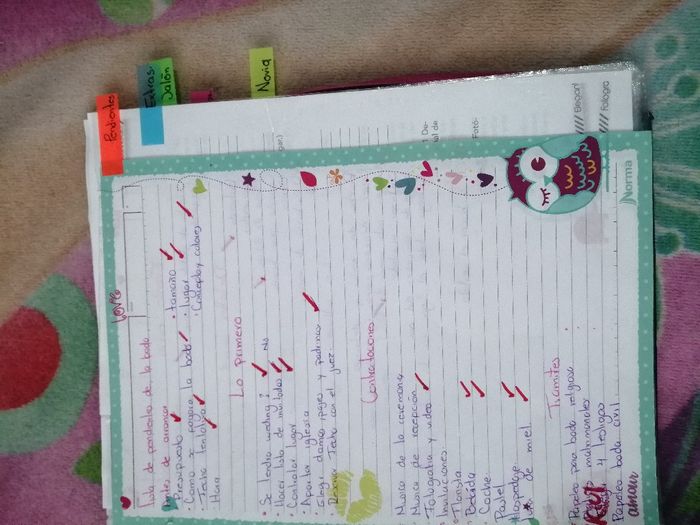 Pendientes
Extras
Salón
Novia
Love
Lista de pendientes de la boda
Antes de arrancar
Presupuesto
Como se pagara la boda
Fecha tentativa
Hora
tamaño
lugar
Concepto y colores
Lo primero
Se tendra wedding? No
Hacer lista de invitados
Contratar lugar
Apartar iglesia
Elegir damas, pajes y padrinos
Reservar fecha con el juez.
Contrataciones
Musica de la ceremonia
Musica de recepción
Fotografia y video
Invitaciones
Florista
Bebida
Coche
Pastel
Hospedaje
de miel
Tramites
Papeleo para boda religiosa
matrimoniales
Papeleo boda civil
amour
Norma
Fotó-
Elegant
Fotogra